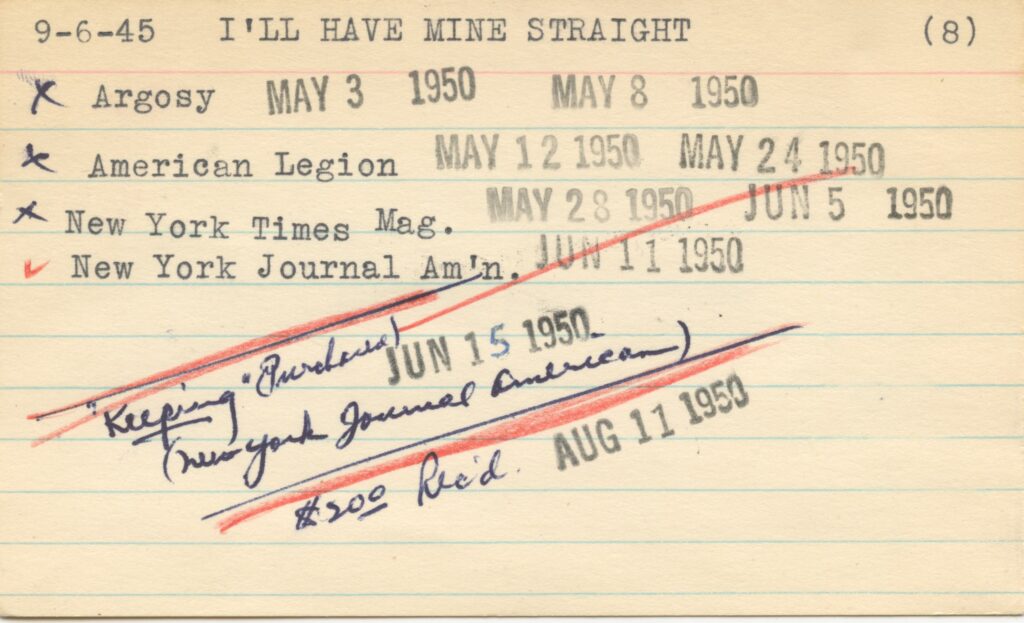 9-6-45 I'LL HAVE MINE STRAIGHT (8)
x Argosy MAY 3 1950 MAY 8 1950
x American Legion MAY 12 1950 MAY 24 1950
x New York Times Mag. MAY 28 1950 JUN 5 1950
✓ New York Journal Am'n. JUN 11 1950
"Keeping" (Purchased) JUN 15 1950
(New York Journal American)
Rec'd. AUG 11 1950